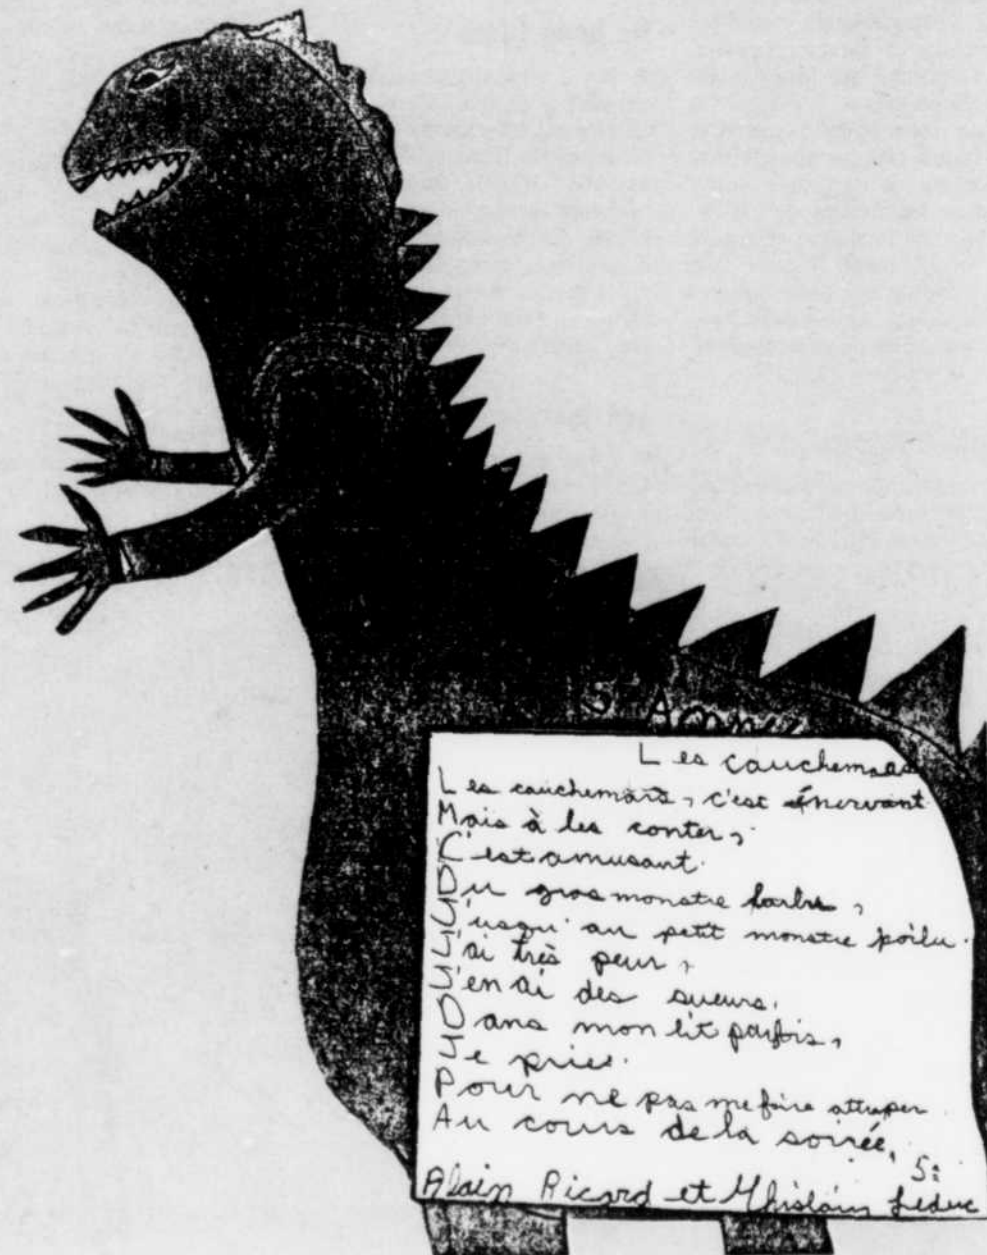 Les cauchemars
Les cauchemars, c'est énervant
Mais à les conter,
C'est amusant.
Du gros monstre barbu,
J'usqu'au petit monstre poilu.
J'ai très peur,
J'en ai des sueurs.
Dans mon lit parfois,
Je prie.
Pour ne pas me faire attraper
Au cours de la soirée,
5e
Alain Ricard et Ghislain Leduc